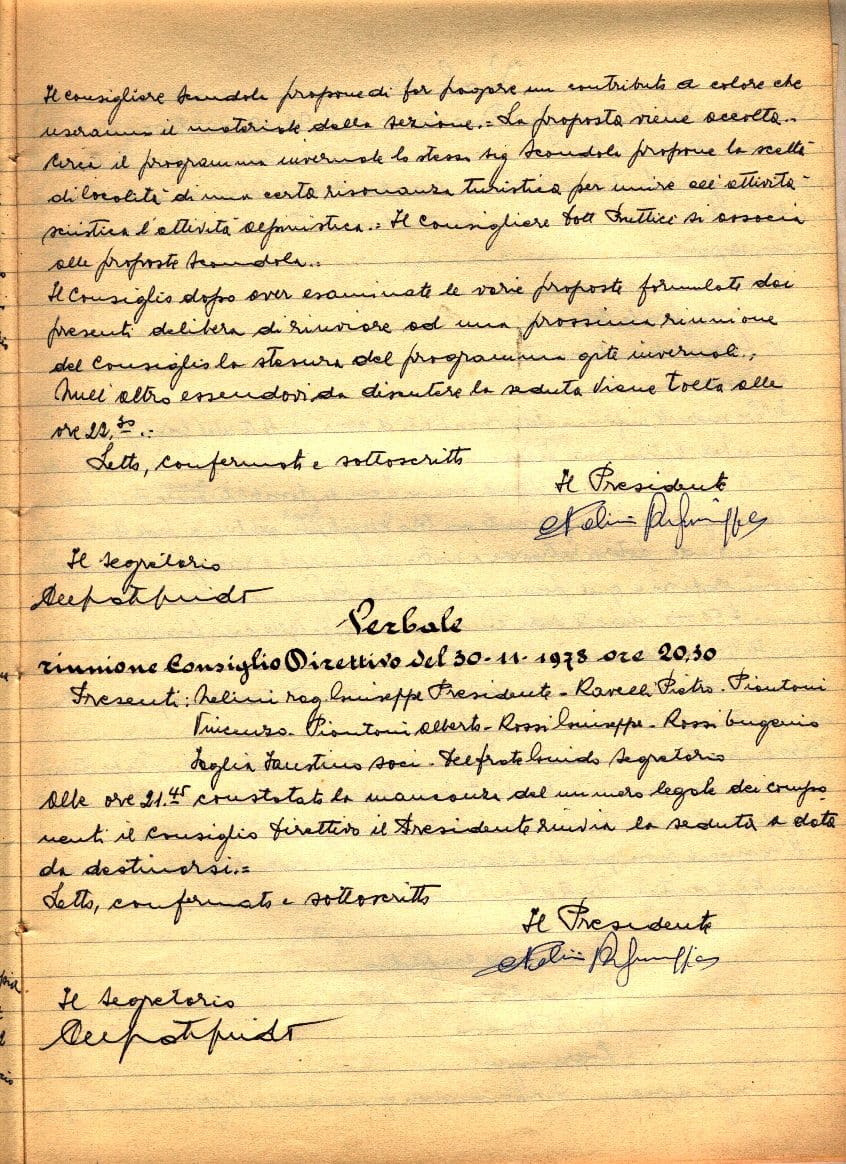 Il consigliere Scandola propone di far pagare un contributo a coloro che
useranno il materiale della sezione.= La proposta viene accolta..
Circa il programma invernale lo stesso sig Scandola propone la scelta
di località di una certa risonanza turistica per unire all'attività
sciistica l'attività alpinistica.= Il consigliere Dott si associa
alle proposte Scandola..
Il Consiglio dopo aver esaminate le varie proposte formulate dai
presenti delibera di rinviare ad una prossima riunione
del Consiglio la stesura del programma gite invernali.,
Null'altro essendovi da discutere la seduta viene tolta alle
ore 22.30.=
Letto, confermato e sottoscritto
Il Presidente
Nelini Rag Giuseppe
Il Segretario
Delfrate Guido
Verbale
riunione Consiglio Direttivo del 30-11-1978 ore 20,30
Presenti: Nelini rag. Giuseppe Presidente - Ravelli Pietro - Piantoni
Vincenzo - Piantoni Alberto - Rossi Giuseppe - Rossi Eugenio
Taglia Faustino soci - Delfrate Guido Segretario
Alle ore 21.45 constatato la mancanza del numero legale dei compo-
nenti il Consiglio Direttivo il Presidente rinvia la seduta a data
da destinarsi.=
Letto, confermato e sottoscritto
Il Presidente
Nelini Rag Giuseppe
Il Segretario
Delfrate Guido